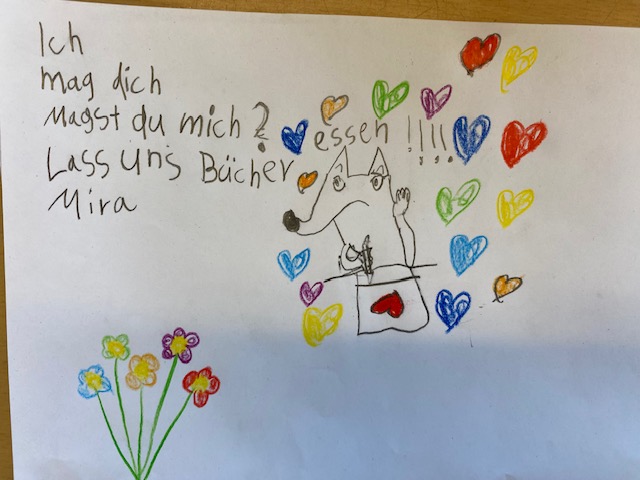 Ich
mag dich
Magst du mich?
Lass uns Bücher essen !!!!
Mira